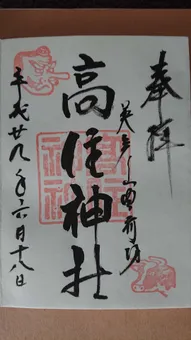 奉拝
英彦山豊前坊
高住神社
平成廿九年六月十八日